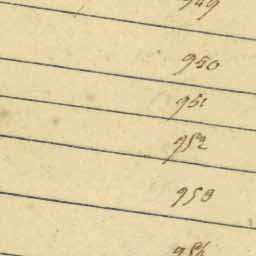 949
950
951
952
953
954